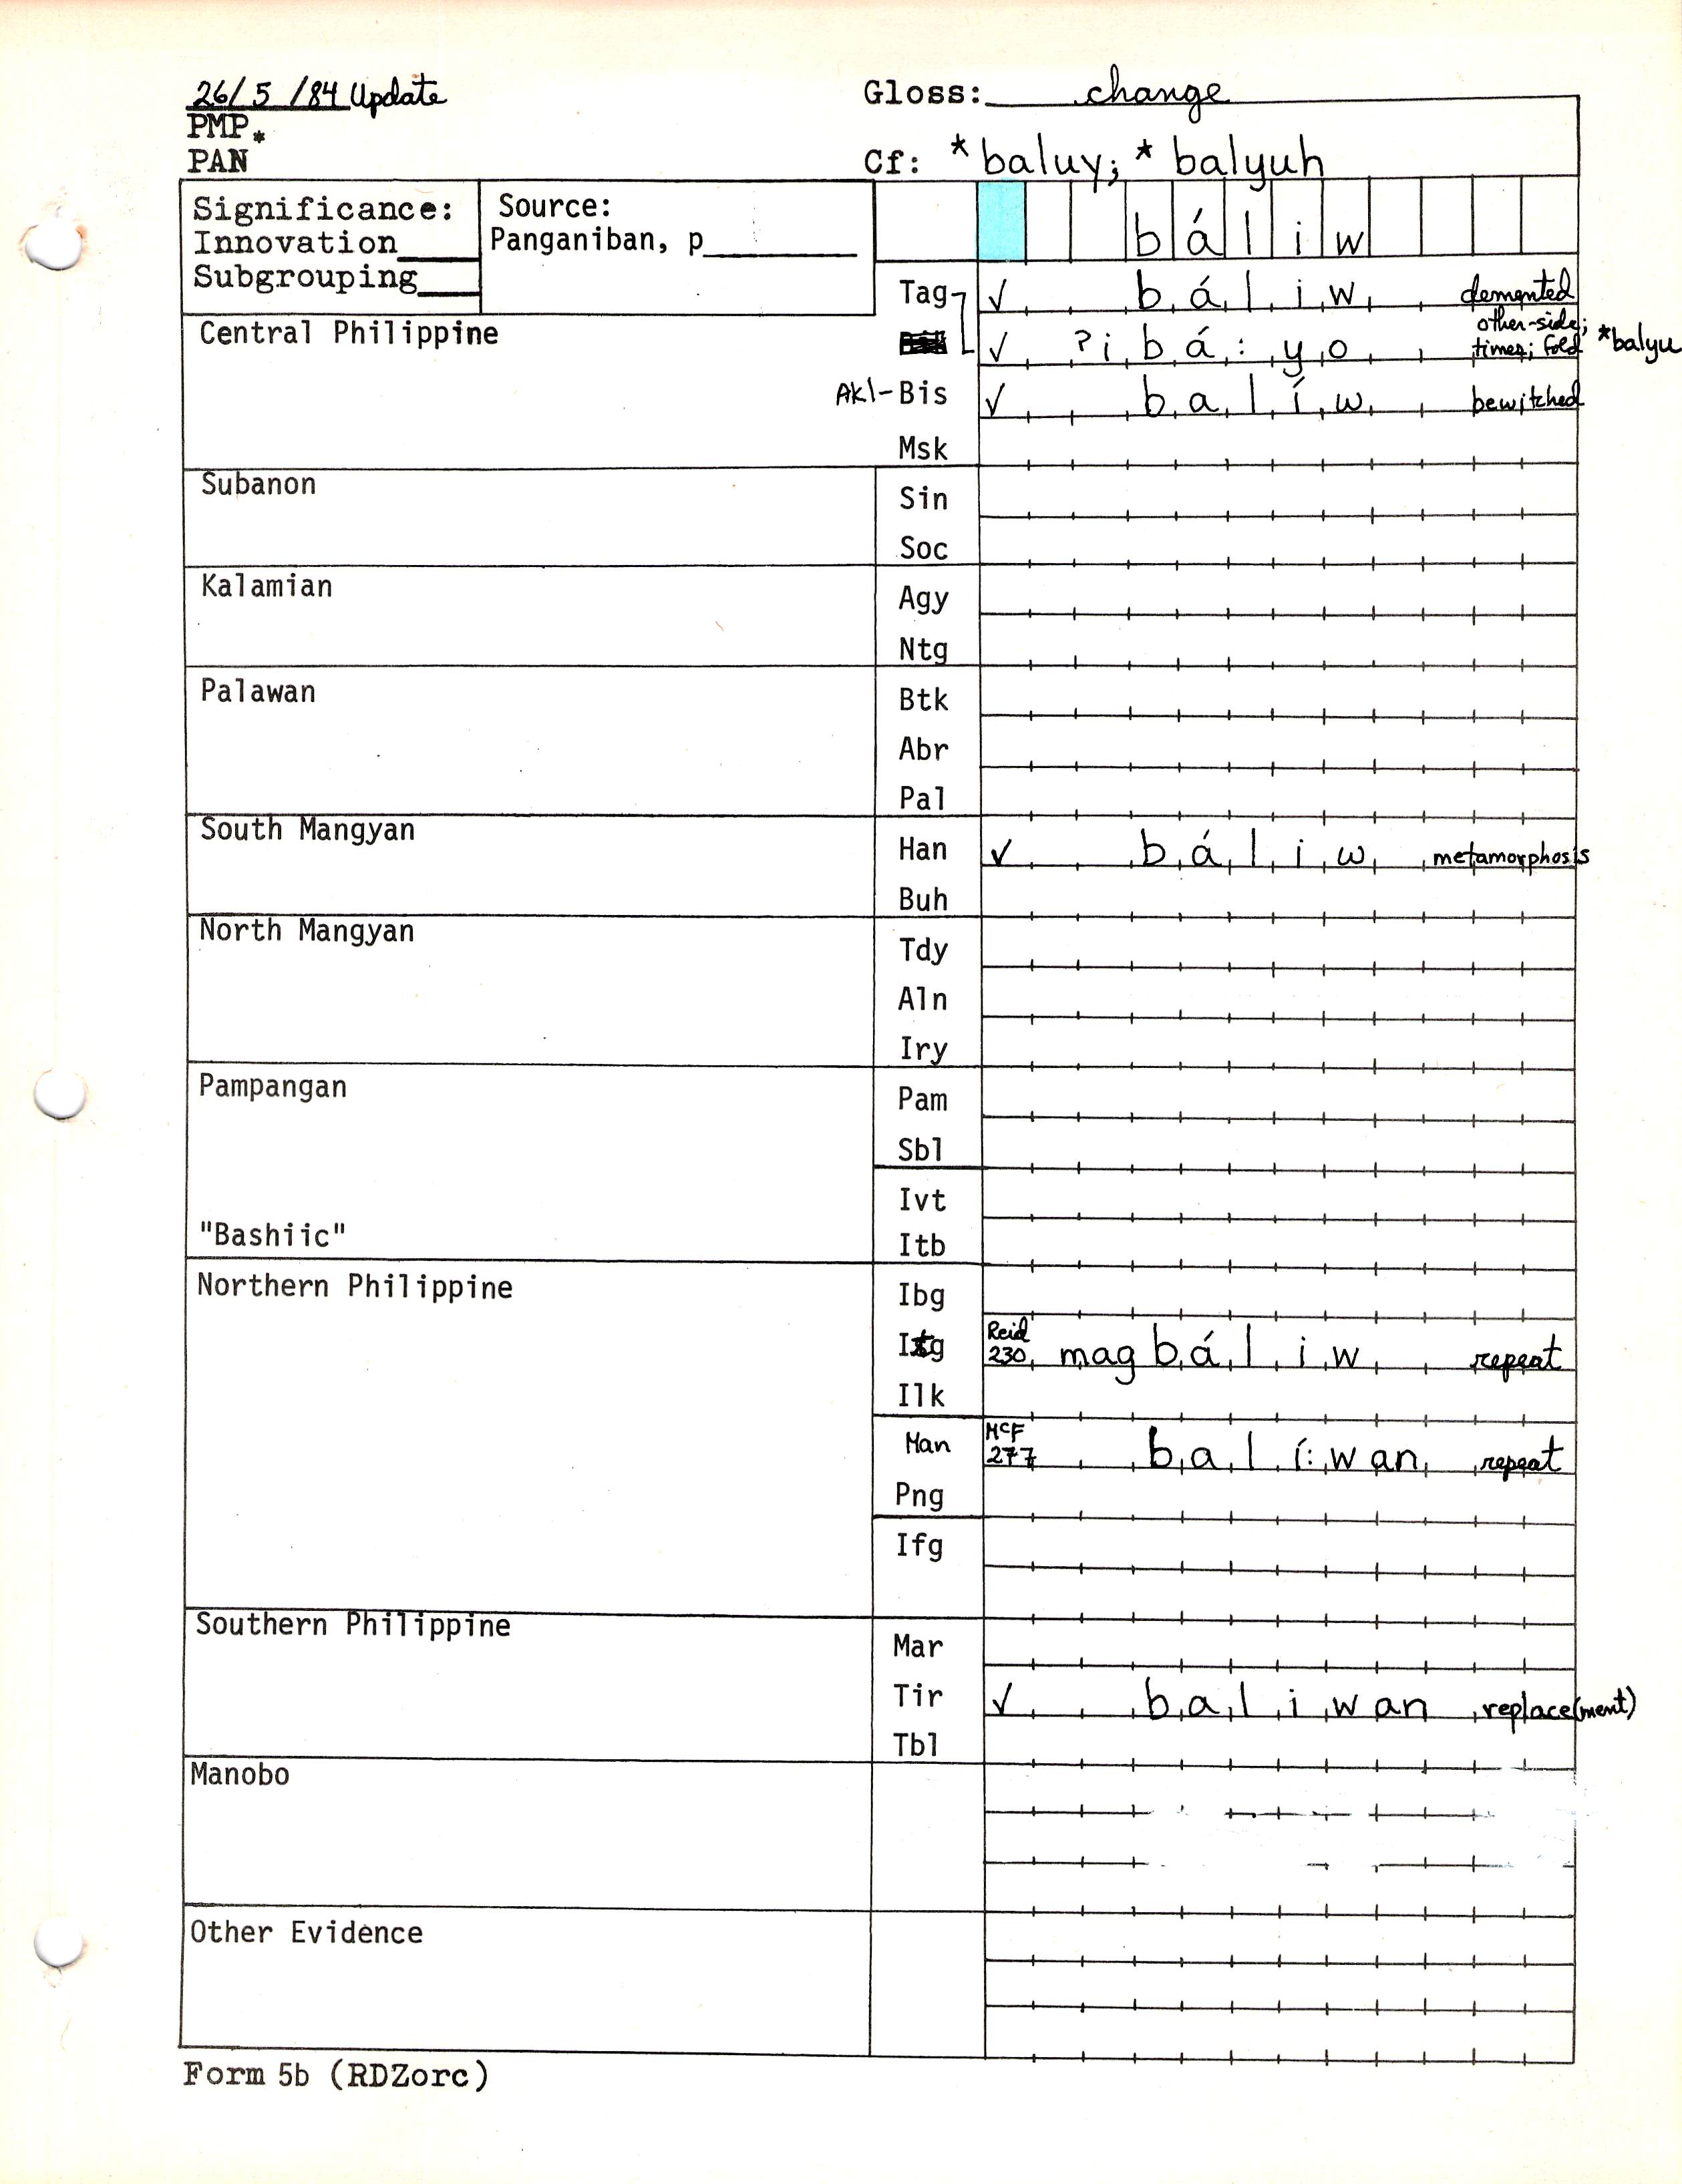 26/5/84 Update
Gloss: change
PMP*
PAN
Cf: *baluy; *balyuh
Significance:
Innovation
Subgrouping
Source:
Panganiban, p
báliw
Central Philippine
Tag ✓ báliw demented
✓ ?ibá:yo other-side; times; fold *balyu
Akl-Bis ✓ balíw bewitched
Msk
Subanon
Sin
Soc
Kalamian
Agy
Ntg
Palawan
Btk
Abr
Pal
South Mangyan
Han ✓ báliw metamorphosis
Buh
North Mangyan
Tdy
Aln
Iry
Pampangan
Pam
Sbl
Ivt
"Bashiic"
Itb
Northern Philippine
Ibg
Itg Reid 230 magbáliw repeat
Ilk
Man McF 277 balí:wan repeat
Png
Ifg
Southern Philippine
Mar
Tir ✓ baliwan replace(ment)
Tbl
Manobo
Other Evidence
Form 5b (RDZorc)